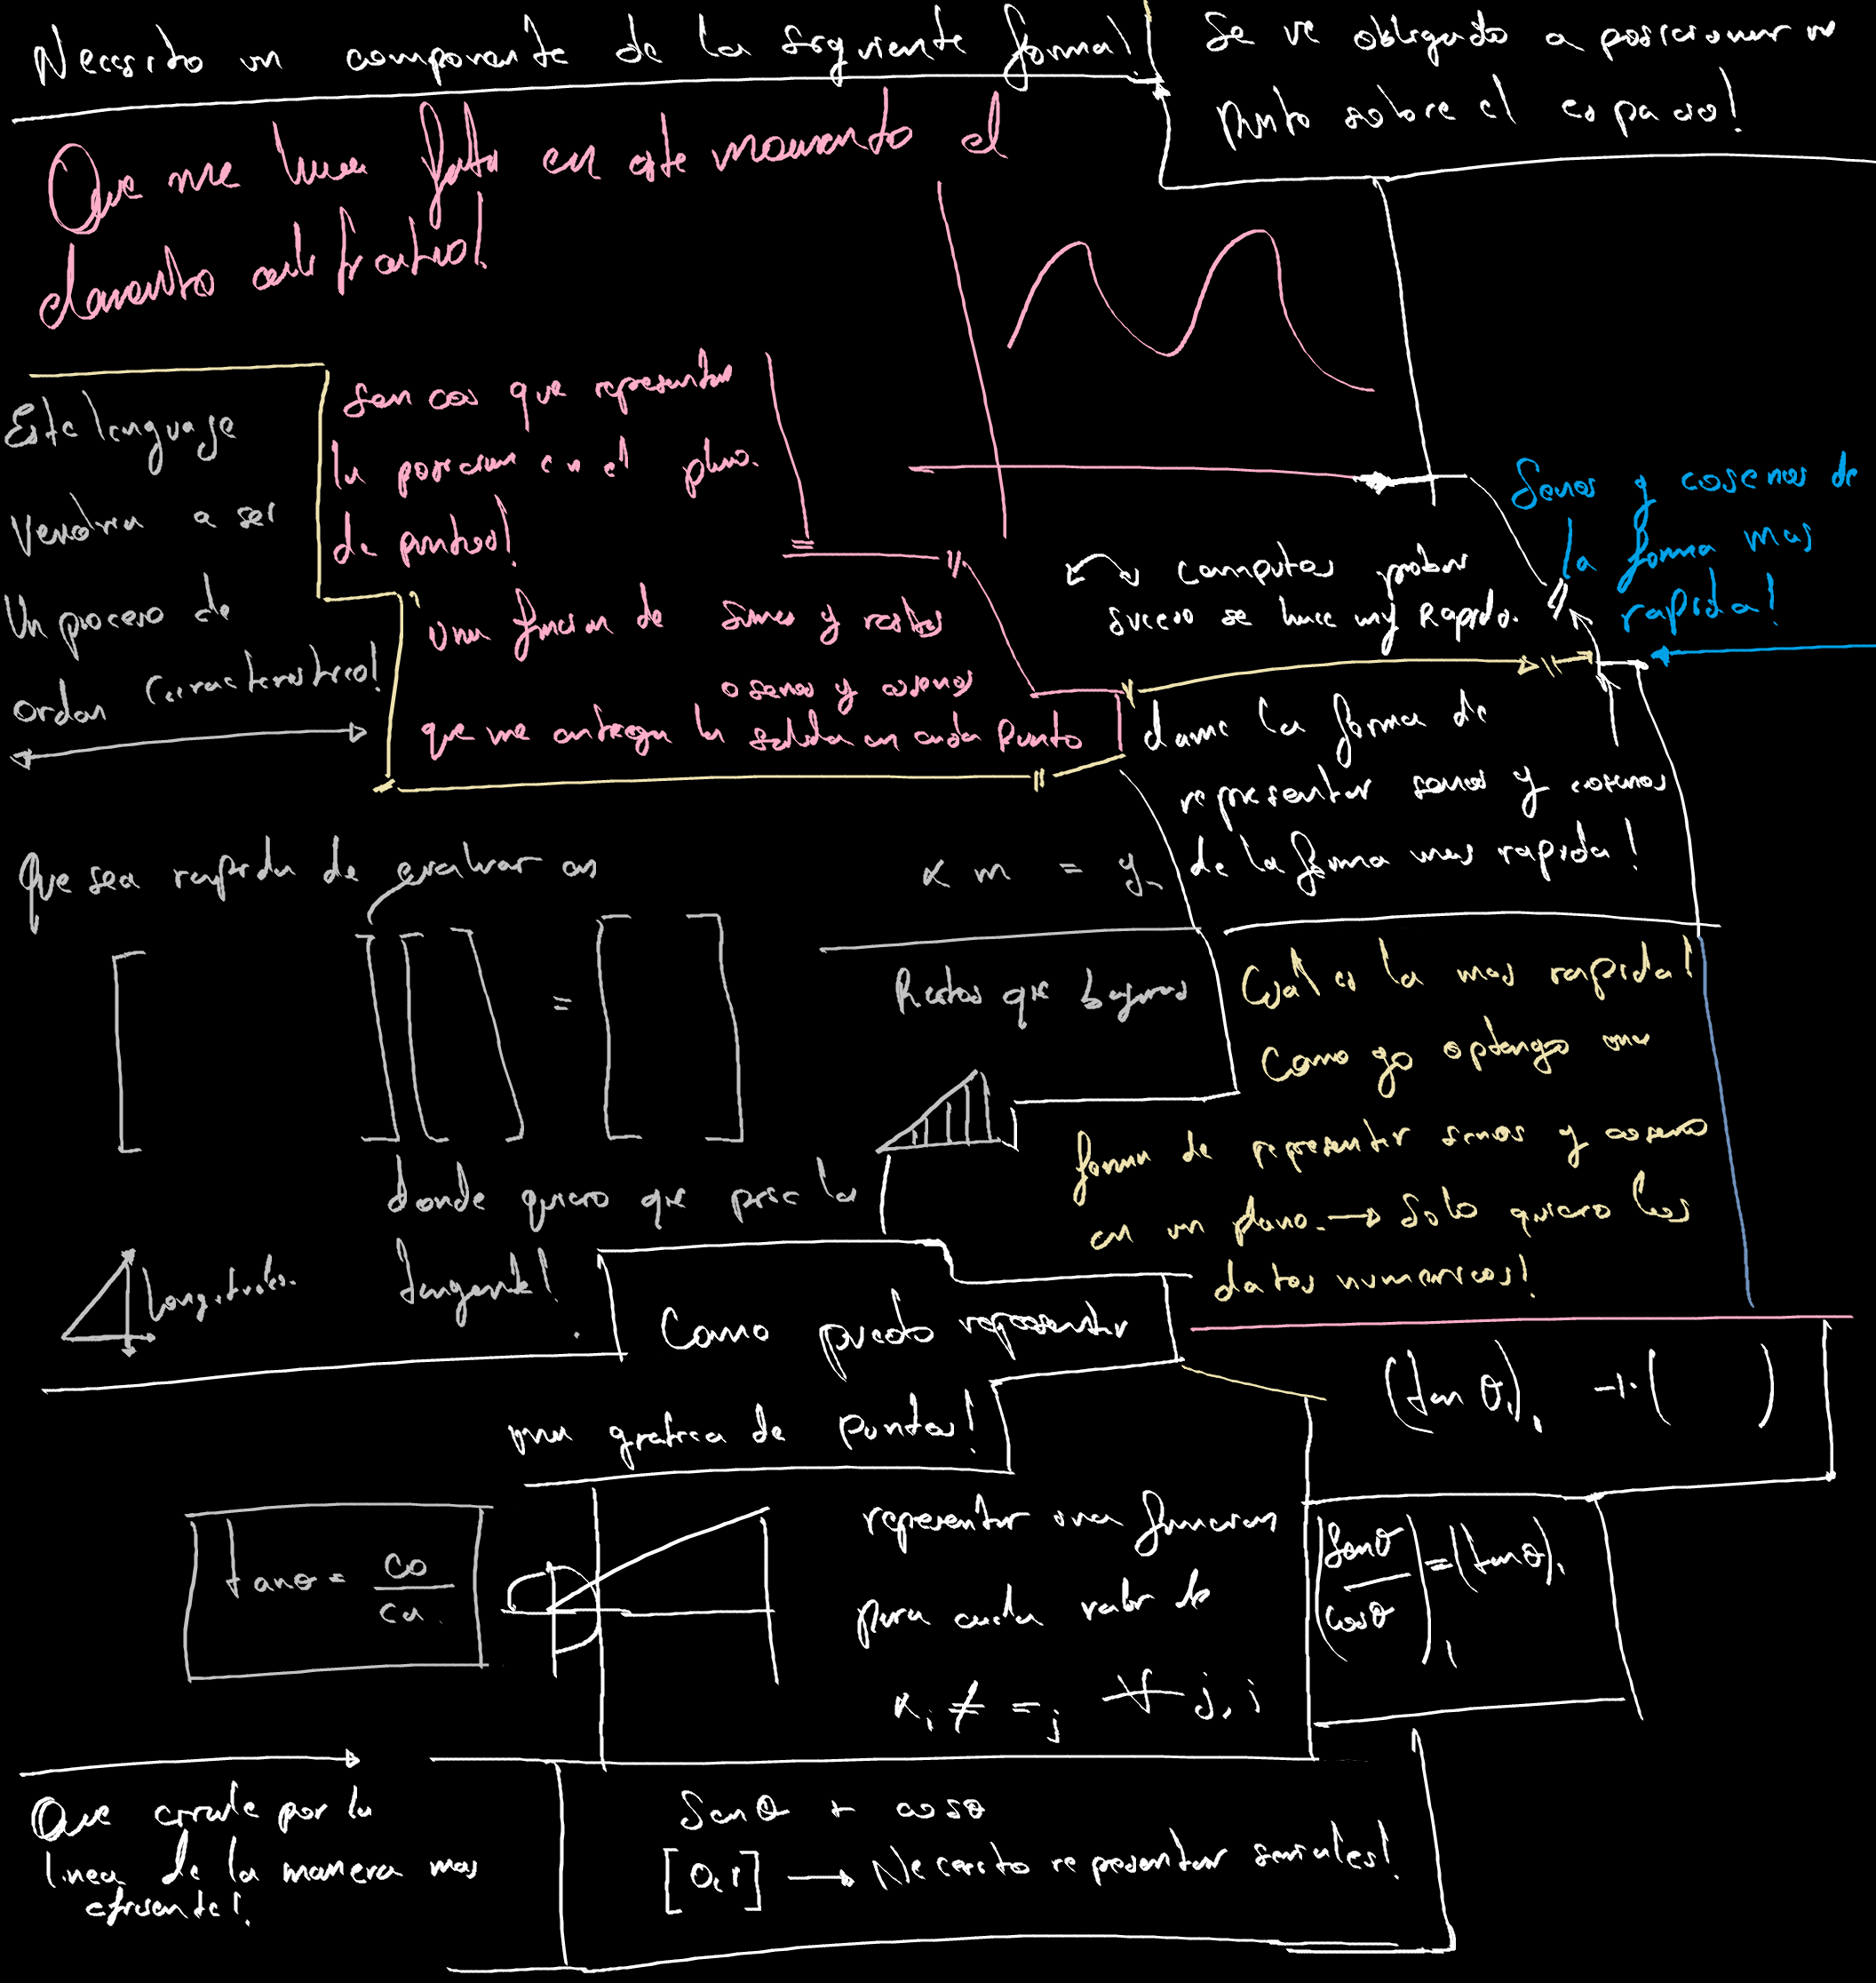 Necesito un componente de la siguiente forma!
Se ve obligado a posicionar un
punto sobre el espacio!
Que me hace falta en este momento el
elemento
Este lenguaje
vendria a ser
Un proceso de
orden caracteristico!
Sen cos que representan
la posicion en el plano.
de puntos!
una funcion de sumas y restas
o senos y cosenos
que me entrega la salida en cada punto
Senos y cosenos de
la forma mas
rapida!
computos
suceso se hace muy Rapido.
dame la forma de
representar senos y cosenos
de la forma mas rapida!
Que sea rapida de evaluar en
x m = y
[ ] [ ] = [ ]
Rectas que
Cual es la mas rapida!
Como yo optengo una
forma de representar senos y coseno
en un plano. → Solo quiero los
datos numericos!
donde quiero que pase la
tangente!
Longitudes.
Como puedo representar
una grafica de puntos!
(tan θ)₁ + (      )
tanθ = co/ca.
representar una funcion
para cada valor de
x i ≠ = j ∀ j, i
(senθ/cosθ)₁ = (tanθ)₁
Que circule por la
linea de la manera mas
eficiente!
Sen θ + cos θ
[0,1] → Necesito representar señales!